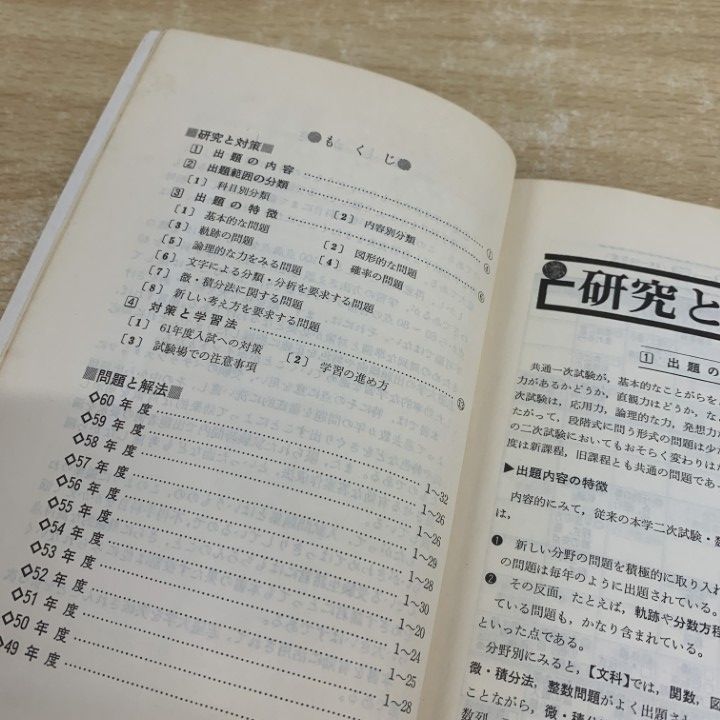 ●もくじ●
■研究と対策■
1 出題の内容 ①
2 出題範囲の分類 ④
〔1〕科目別分類 〔2〕内容別分類
3 出題の特徴 ⑥
〔1〕基本的な問題 〔2〕図形的な問題
〔3〕軌跡の問題 〔4〕確率の問題
〔5〕論理的な力をみる問題
〔6〕文字による分類・分析を要求する問題
〔7〕微・積分法に関する問題
〔8〕新しい考え方を要求する問題
4 対策と学習法
〔1〕61年度入試への対策 〔2〕学習の進め方
〔3〕試験場での注意事項
■問題と解法■
◇60年度 1~32
◇59年度 1~26
◇58年度 1~26
◇57年度 1~29
◇56年度 1~28
◇55年度 1~30
◇54年度 1~20
◇53年度 1~24
◇52年度 1~25
◇51年度 1~28
◇50年度
◇49年度
研究と
1 出題の
共通一次試験が,基本的なことがらを
力があるかどうか,直観力はどうか,な
次試験は,応用力,論理的な力,発想力
たがって,段階式に問う形式の問題は少
の二次試験においてもおそらく変わりは
度は新課程,旧課程とも共通の問題であ
▶出題内容の特徴
内容的にみて,従来の本学二次試験・数
は,
❶ 新しい分野の問題を積極的に取り入
の問題は毎年のように出題されている。
❷ その反面,たとえば,軌跡や分数方程
ている問題も,かなり含まれている。
といった点である。
分野別にみると,【文科】では,関数,図
微・積分法,整数問題がよく出題され
ことながら,微・積
数列